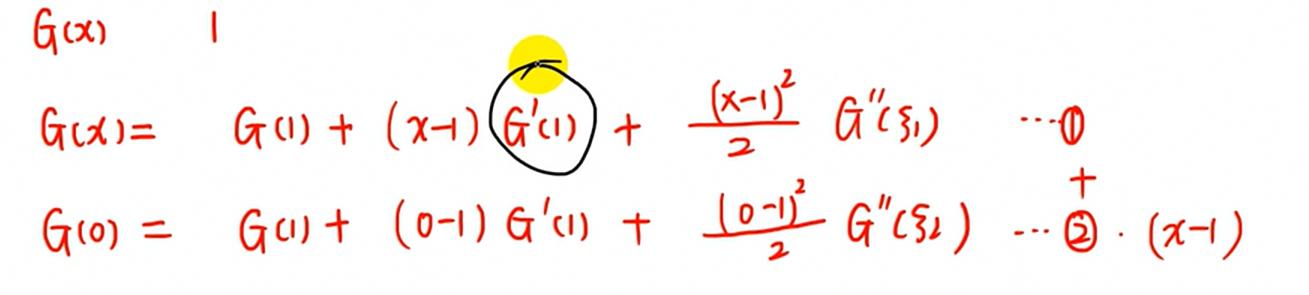 G(x) 1
G(x) = G(1) + (x-1) G'(1) + (x-1)²/2 G''(ξ₁) ...①
+
G(0) = G(1) + (0-1) G'(1) + (0-1)²/2 G''(ξ₂) ...②·(x-1)